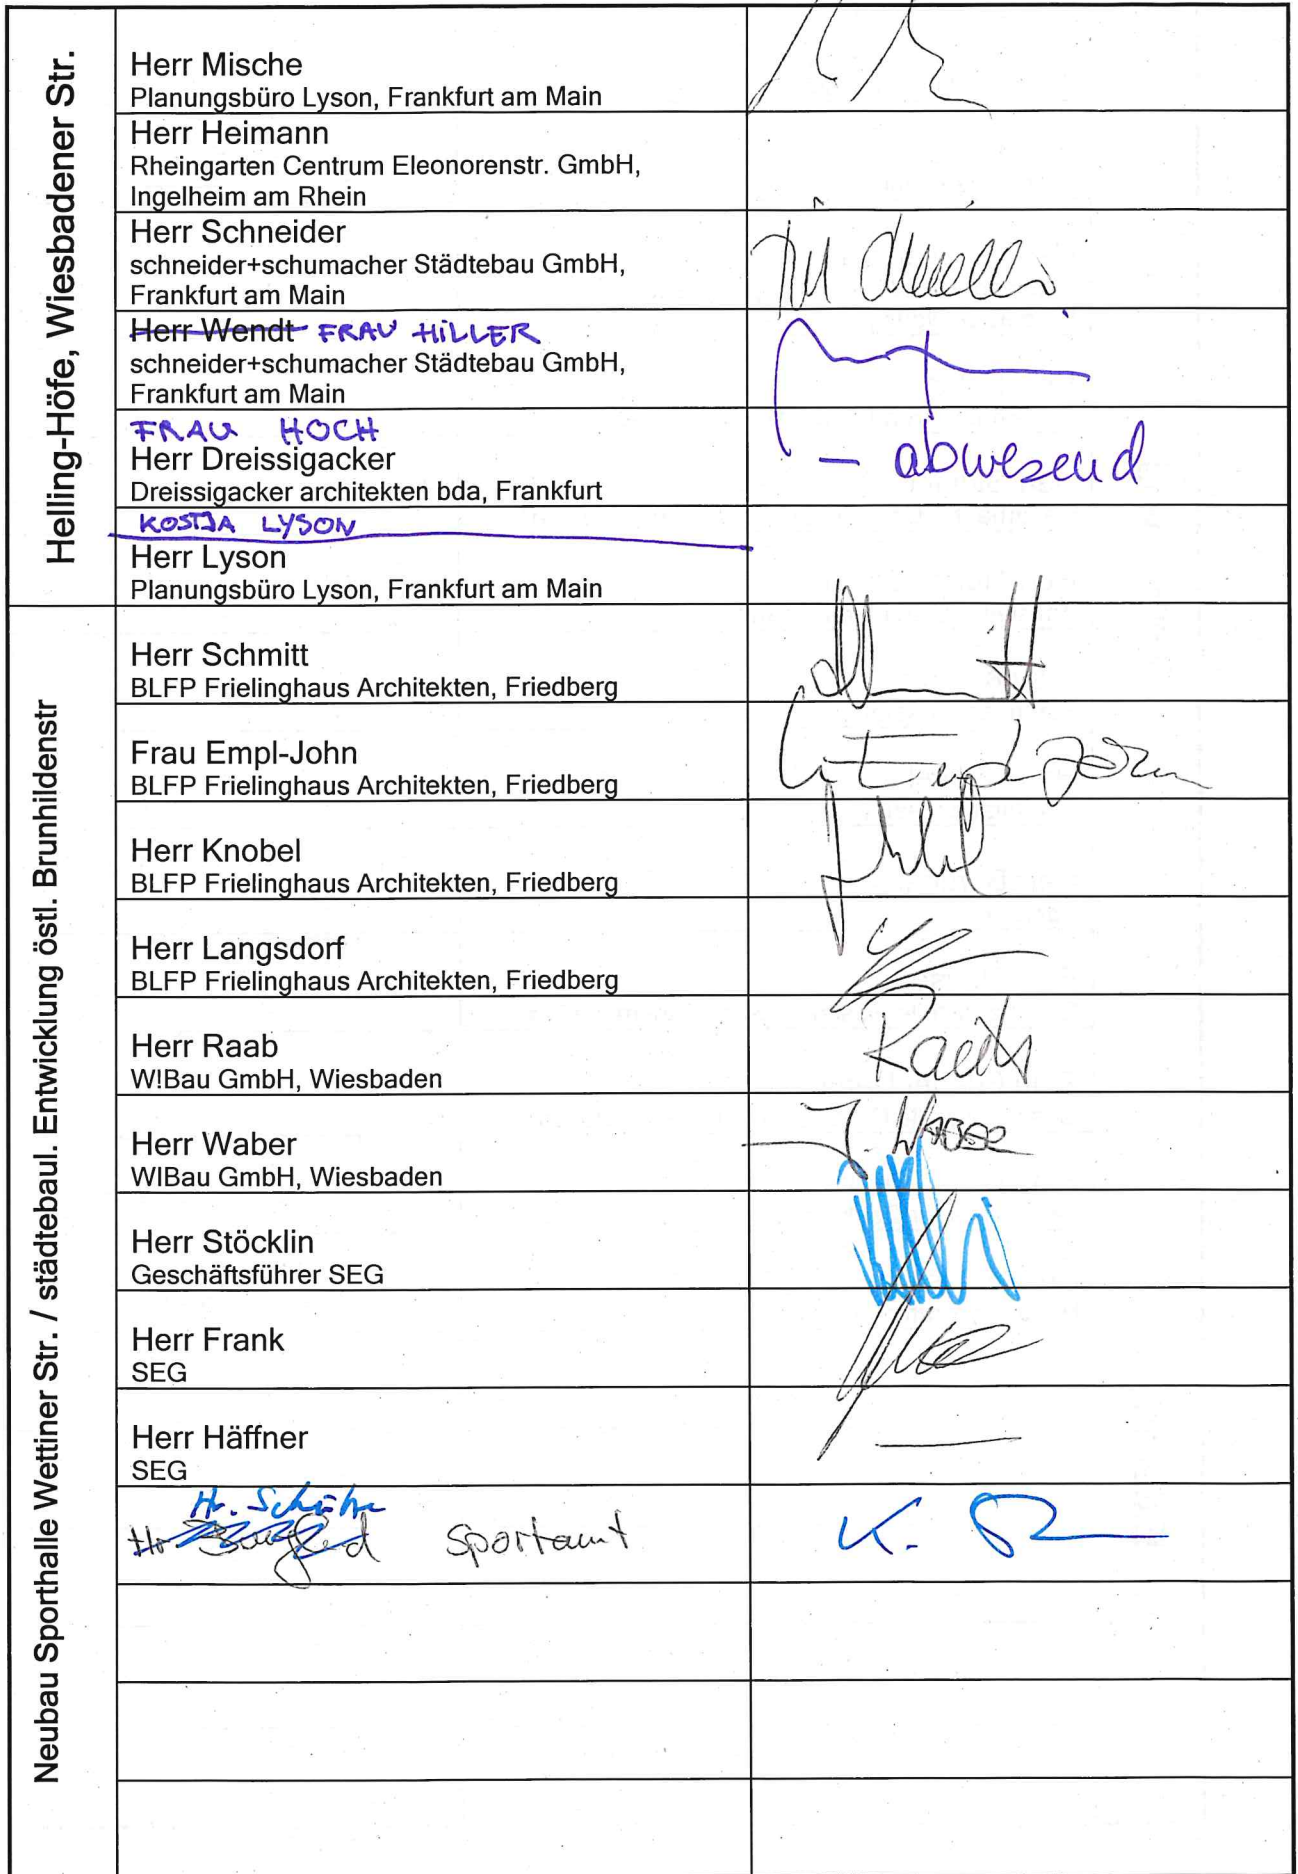 Helling-Höfe, Wiesbadener Str.
Herr Mische
Planungsbüro Lyson, Frankfurt am Main
Herr Heimann
Rheingarten Centrum Eleonorenstr. GmbH,
Ingelheim am Rhein
Herr Schneider
schneider+schumacher Städtebau GmbH,
Frankfurt am Main
Herr Wendt FRAU HILLER
schneider+schumacher Städtebau GmbH,
Frankfurt am Main
FRAU HOCH
Herr Dreissigacker
Dreissigacker architekten bda, Frankfurt
– abwesend
KOSTJA LYSON
Herr Lyson
Planungsbüro Lyson, Frankfurt am Main
Neubau Sporthalle Wettiner Str. / städtebaul. Entwicklung östl. Brunhildenstr
Herr Schmitt
BLFP Frielinghaus Architekten, Friedberg
Frau Empl-John
BLFP Frielinghaus Architekten, Friedberg
Herr Knobel
BLFP Frielinghaus Architekten, Friedberg
Herr Langsdorf
BLFP Frielinghaus Architekten, Friedberg
Herr Raab
W!Bau GmbH, Wiesbaden
Raab
Herr Waber
WIBau GmbH, Wiesbaden
J. Waber
Herr Stöcklin
Geschäftsführer SEG
Herr Frank
SEG
Herr Häffner
SEG
Hr.
Hr Sportamt
K.